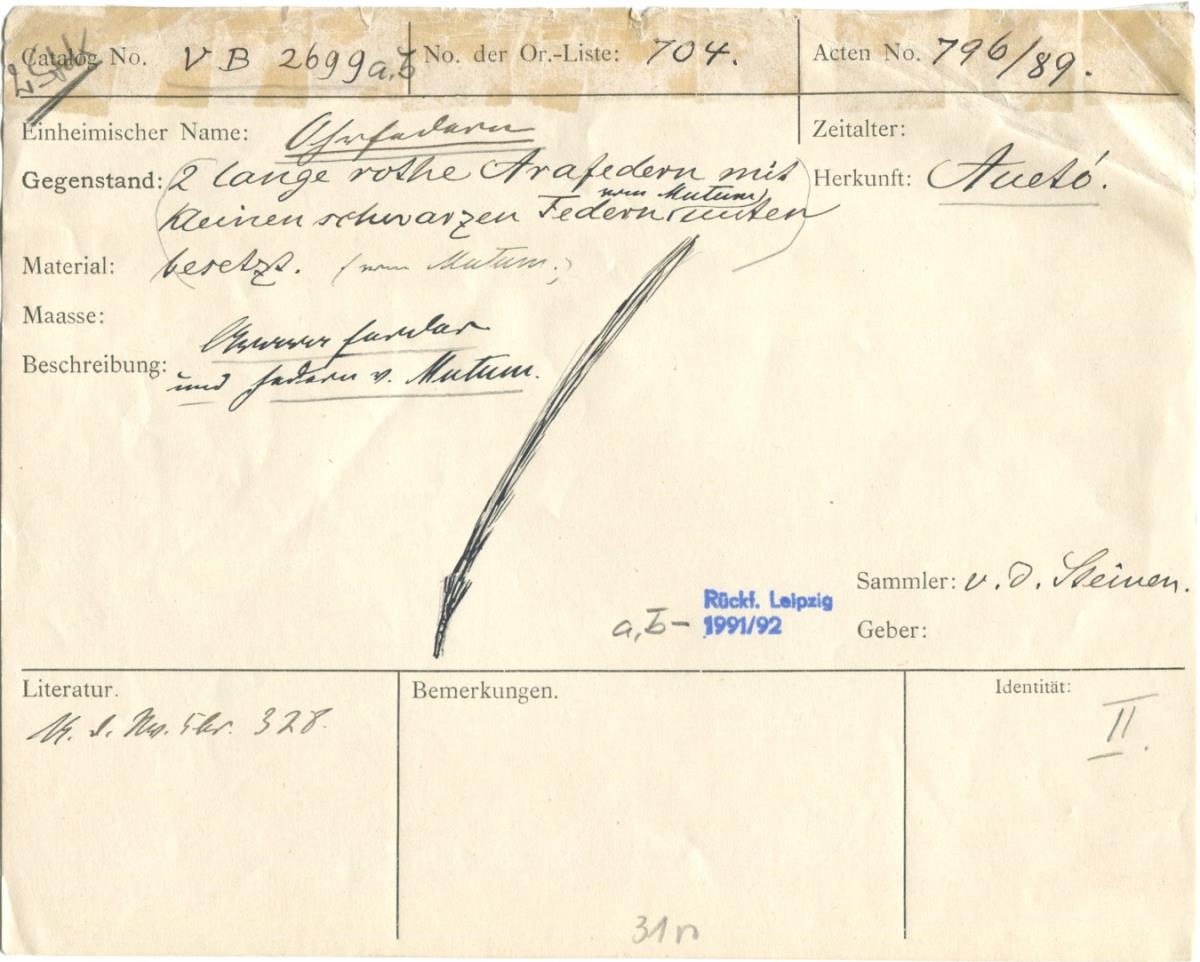 Catalog No. VB 2699 a,b No. der Or.-Liste: 704. Acten No. 796/89.
Einheimischer Name: Ohrfedern Zeitalter:
Gegenstand: (2 lange rothe Arafedern mit Herkunft: Auetö.
vom Mutum
kleinen schwarzen Federn unten
Material: besetzt. (vom Mutum.)
Maasse:
Beschreibung:
und Federn v. Mutum.
Sammler: v. d. Steinen.
a,b – Rückf. Leipzig
1991/92
Geber:
Literatur. Bemerkungen. Identität:
328. II.
31